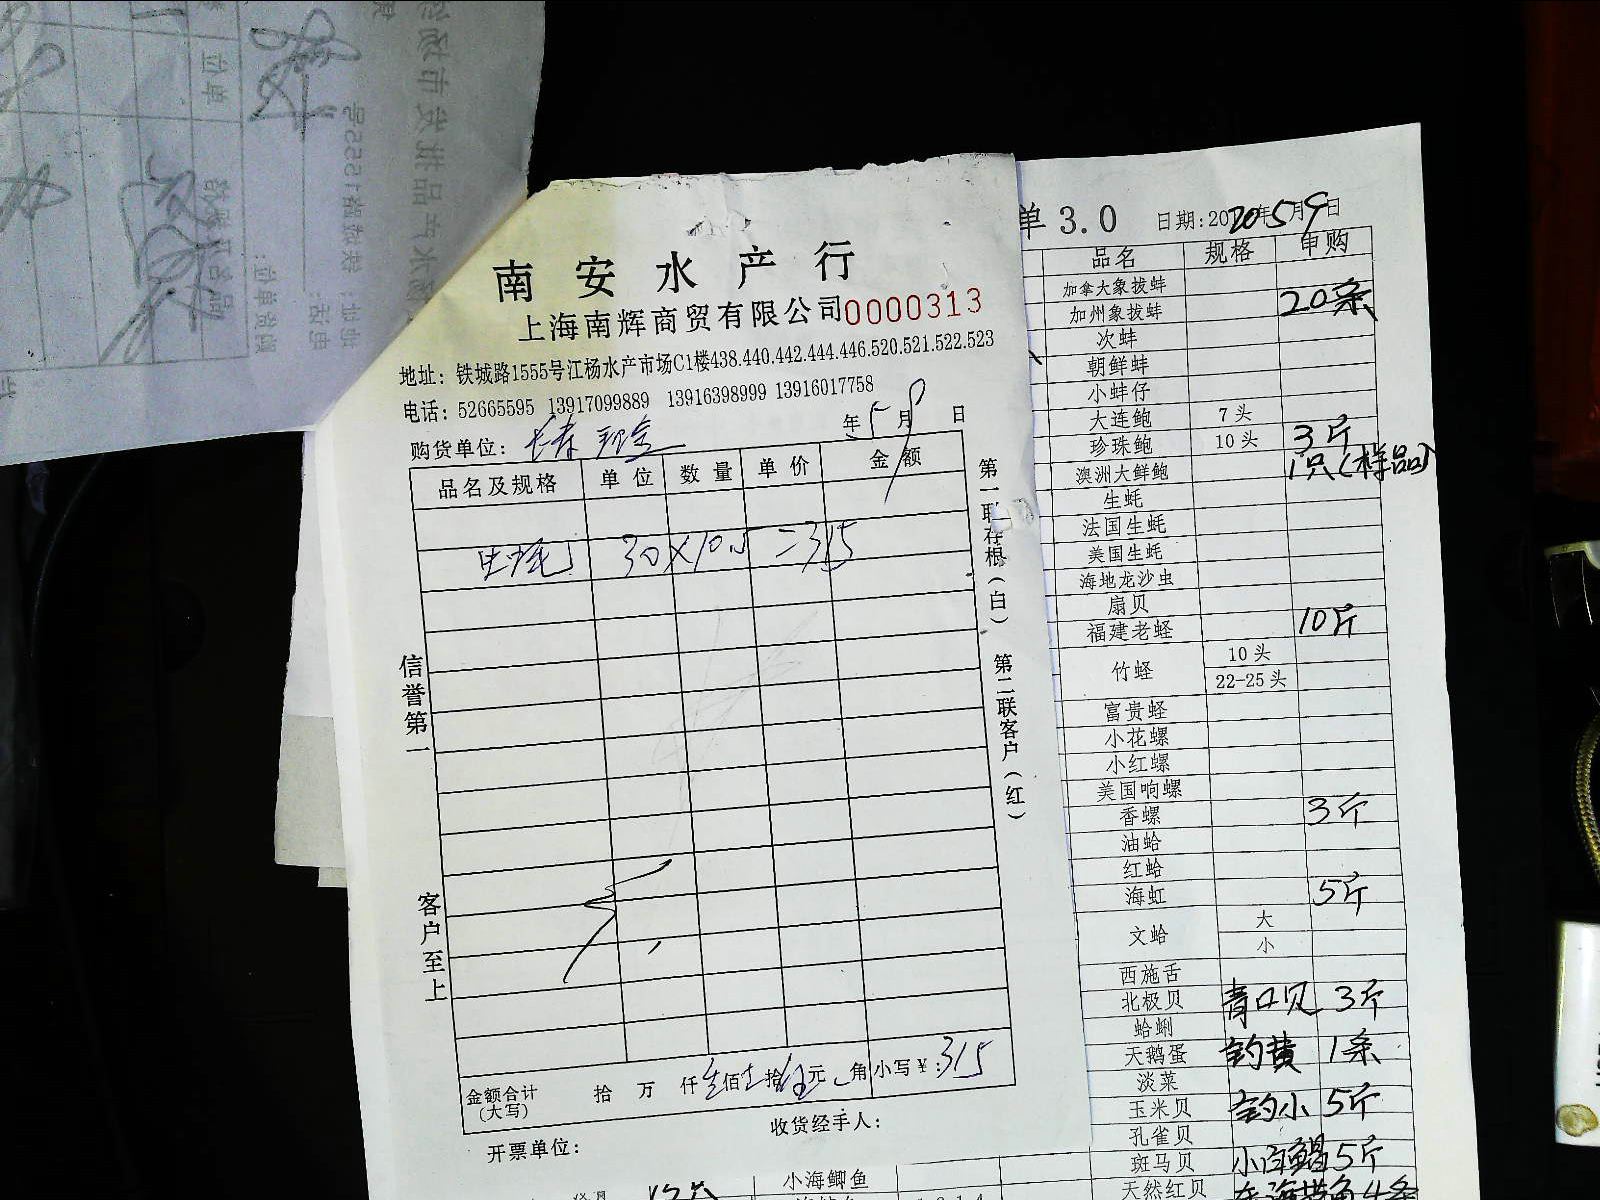 南安水产行
上海南辉商贸有限公司 0000313
地址：铁城路1555号江杨水产市场C1楼438.440.442.444.446.520.521.522.523
电话：52665595 13917099889 13916398999 13916017758
购货单位： 年5月9日
品名及规格 单位 数量 单价 金额
生蚝 30×10.5=315
金额合计（大写） 拾 万 仟 叁佰壹拾伍元 角 小写￥：315
收货经手人：
开票单位：
信誉第一
客户至上
第一联存根（白）
第二联客户（红）
单3.0 日期:2020年5月9日
品名 规格 申购
加拿大象拔蚌
加州象拔蚌 20条
次蚌
朝鲜蚌
小蚌仔
大连鲍 7头
珍珠鲍 10头 3斤
澳洲大鲜鲍 1只(样品)
生蚝
法国生蚝
美国生蚝
海地龙沙虫
扇贝
福建老蛏 10斤
竹蛏 10头
22-25头
富贵蛏
小花螺
小红螺
美国响螺
香螺 3斤
油蛤
红蛤
海虹 5斤
文蛤 大
小
西施舌
北极贝 青口贝 3斤
蛤蜊
天鹅蛋 1条
淡菜
玉米贝 5斤
孔雀贝
斑马贝 5斤
天然红贝 4条
小海鲫鱼